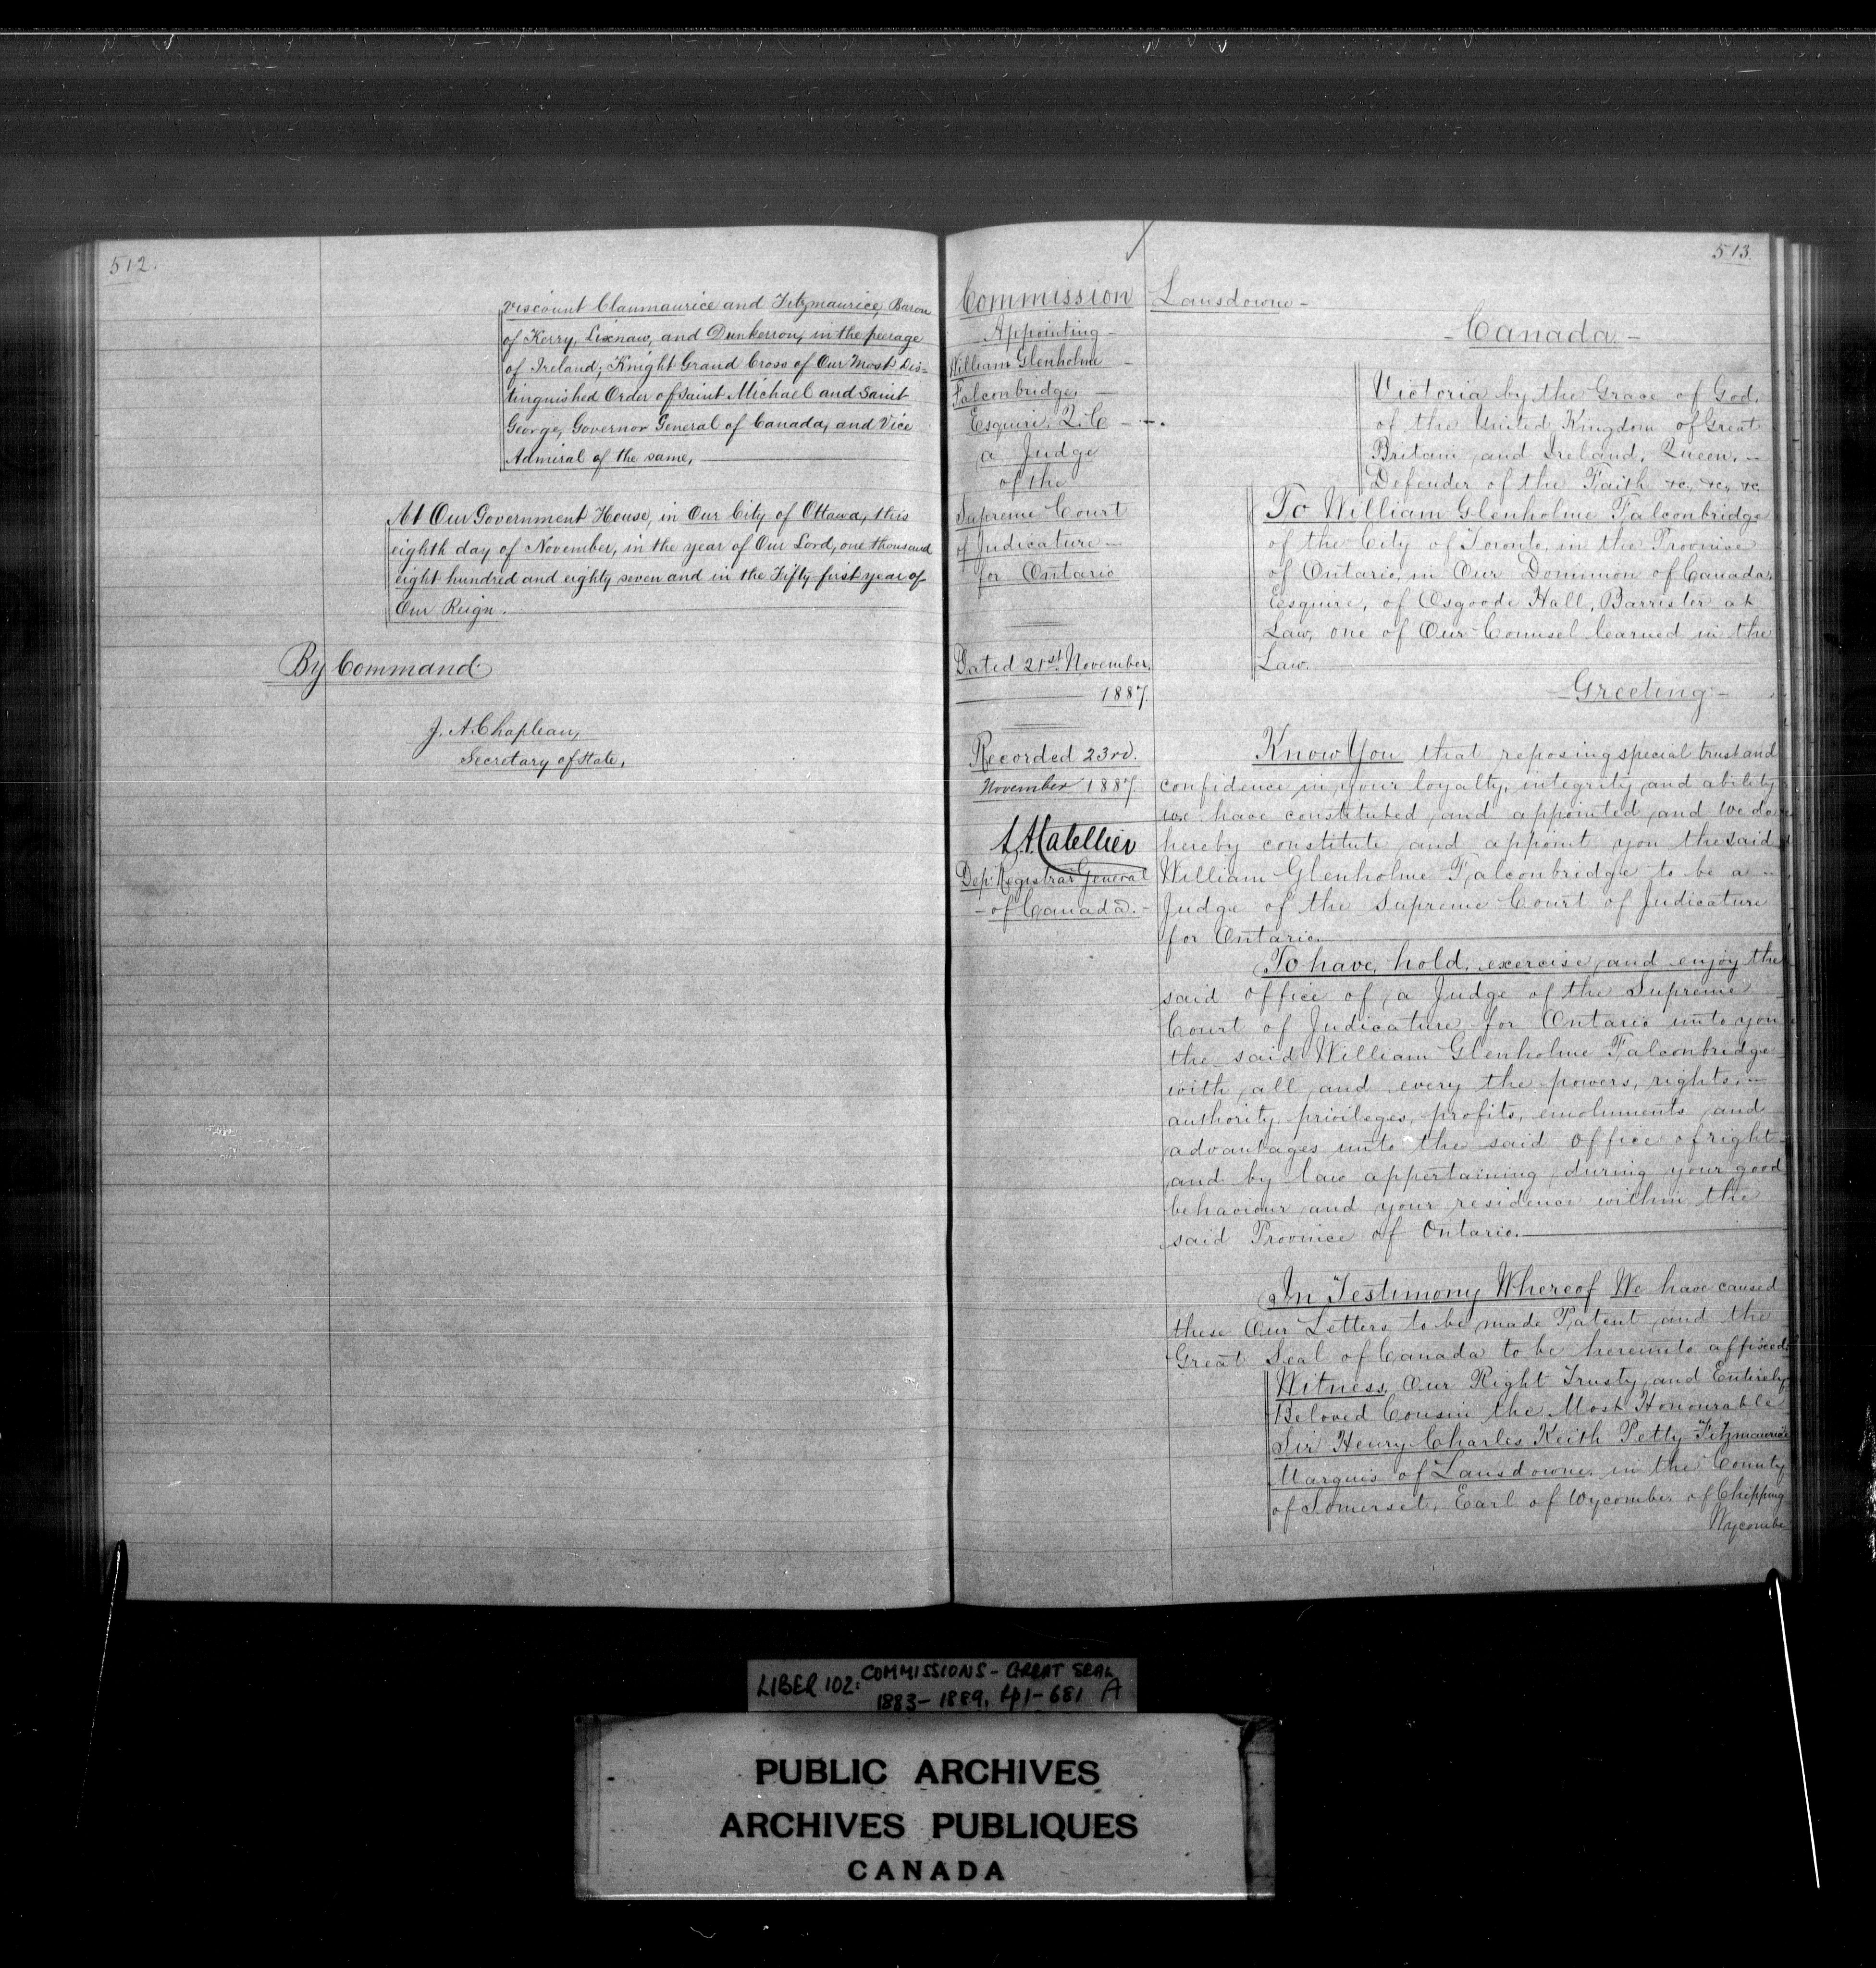 512.
Viscount Clanmaurice and Fitzmaurice, Baron
of Kerry, Lixnaw, and Dunkerron, in the peerage
of Ireland; Knight Grand Cross of Our Most Dis=
tinguished Order of Saint Michael and Saint
George, Governor General of Canada, and Vice
Admiral of the same,
At Our Government House, in Our City of Ottawa, this
eighth day of November, in the year of Our Lord, one thousand
eight hundred and eighty seven and in the Fifty-first year of
Our Reign.
By Command
J. A. Chapleau,
Secretary of State,
513.
Commission
Appointing
William Glenholme
Falconbridge,
Esquire. Q.C
a Judge
of the
Supreme Court
of Judicature
for Ontario
Dated 21st November,
1887.
Recorded 23rd.
November 1887.
L. A. Catellier
Dep: Registrar General
of Canada.
Lansdowne
Canada
Victoria by the Grace of God,
of the United Kingdom of Great
Britain and Ireland, Queen,
Defender of the Faith &c., &c., &c.
To William Glenholme Falconbridge
of the City of Toronto, in the Province
of Ontario, in Our Dominion of Canada,
Esquire, of Osgoode Hall, Barrister at
Law, one of Our Counsel learned in the
Law.
Greeting
Know You that reposing special trust and
confidence in your loyalty, integrity and ability
We have constituted and appointed and We do
hereby constitute and appoint you the said
William Glenholme Falconbridge to be a
Judge of the Supreme Court of Judicature
for Ontario.
To have, hold, exercise and enjoy the
said office of a Judge of the Supreme
Court of Judicature for Ontario unto you
the said William Glenholme Falconbridge
with all and every the powers, rights,
authority, privileges, profits, emoluments and
advantages unto the said office of right
and by law appertaining during your good
behaviour and your residence within the
said Province of Ontario.
In Testimony Whereof We have caused
these Our Letters to be made Patent and the
Great Seal of Canada to be hereunto affixed.
Witness, Our Right Trusty and Entirely
Beloved Cousin the Most Honourable
Sir Henry Charles Keith Petty Fitzmaurice
Marquis of Lansdowne, in the County
of Somerset, Earl of Wycombe, of Chipping
Wycombe
LIBER 102: COMMISSIONS - GREAT SEAL
1883-1889, pp1-681 A
PUBLIC ARCHIVES
ARCHIVES PUBLIQUES
CANADA